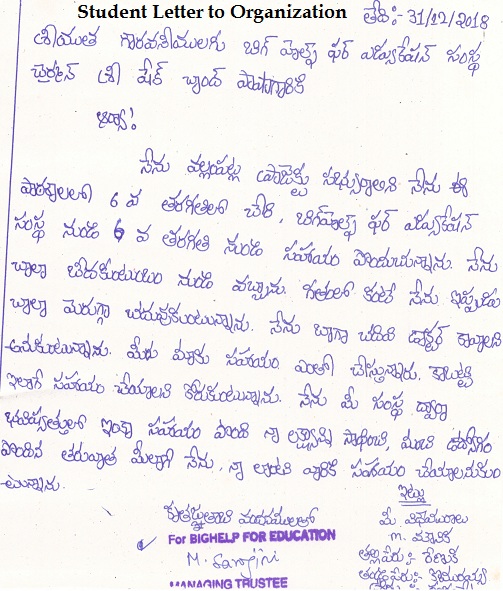 Student Letter to Organization
తేది:- 31/12/2018
శ్రీయుత గౌరవనీయులగు బిగ్ హెల్ప్ ఫర్ ఎడ్యుకేషన్ సంస్థ
చైర్మన్ శ్రీ షేక్ చాంద్ పాషాగారికి
ఆర్యా!
నేను వల్లంపట్ల నేను ఈ
పాఠశాలలో 6 వ తరగతిలో చేరి, బిగ్‌హెల్ప్ ఫర్ ఎడ్యుకేషన్
సంస్థ నుండి 6 వ తరగతి నుండి సహాయం పొందుచున్నాను. నేను
చాలా బీదకుటుంబం నుండి వచ్చాను. గతంలో కంటే నేను ఇప్పుడు
చాలా మెరుగ్గా చదువుకుంటున్నాను. నేను బాగా చదివి డాక్టర్ కావాలని
అనుకుంటున్నాను. మీరు మాకు సహాయం ఎంతో చేస్తున్నారు. కాబట్టి
ఇలాగే సహాయం చేయాలని కోరుకుంటున్నాను. నేను మీ సంస్థ ద్వారా
భవిష్యత్తులో ఇంకా సహాయం పొంది నా లక్ష్యాన్ని సాధించి, మంచి ఉద్యోగం
పొందిన తరువాత మీలాగే నేను, నా లాంటి వారికి సహాయం చేయాలనుకుం
టున్నాను.
ఇట్లు
కృతజ్ఞతాభి వందనములతో
మీ విధేయురాలు
For BIGHELP FOR EDUCATION
M. మౌనిక
M. Sarojini
తల్లిపేరు:- రేణుక
MANAGING TRUSTEE
తండ్రిపేరు:- కొమురయ్య